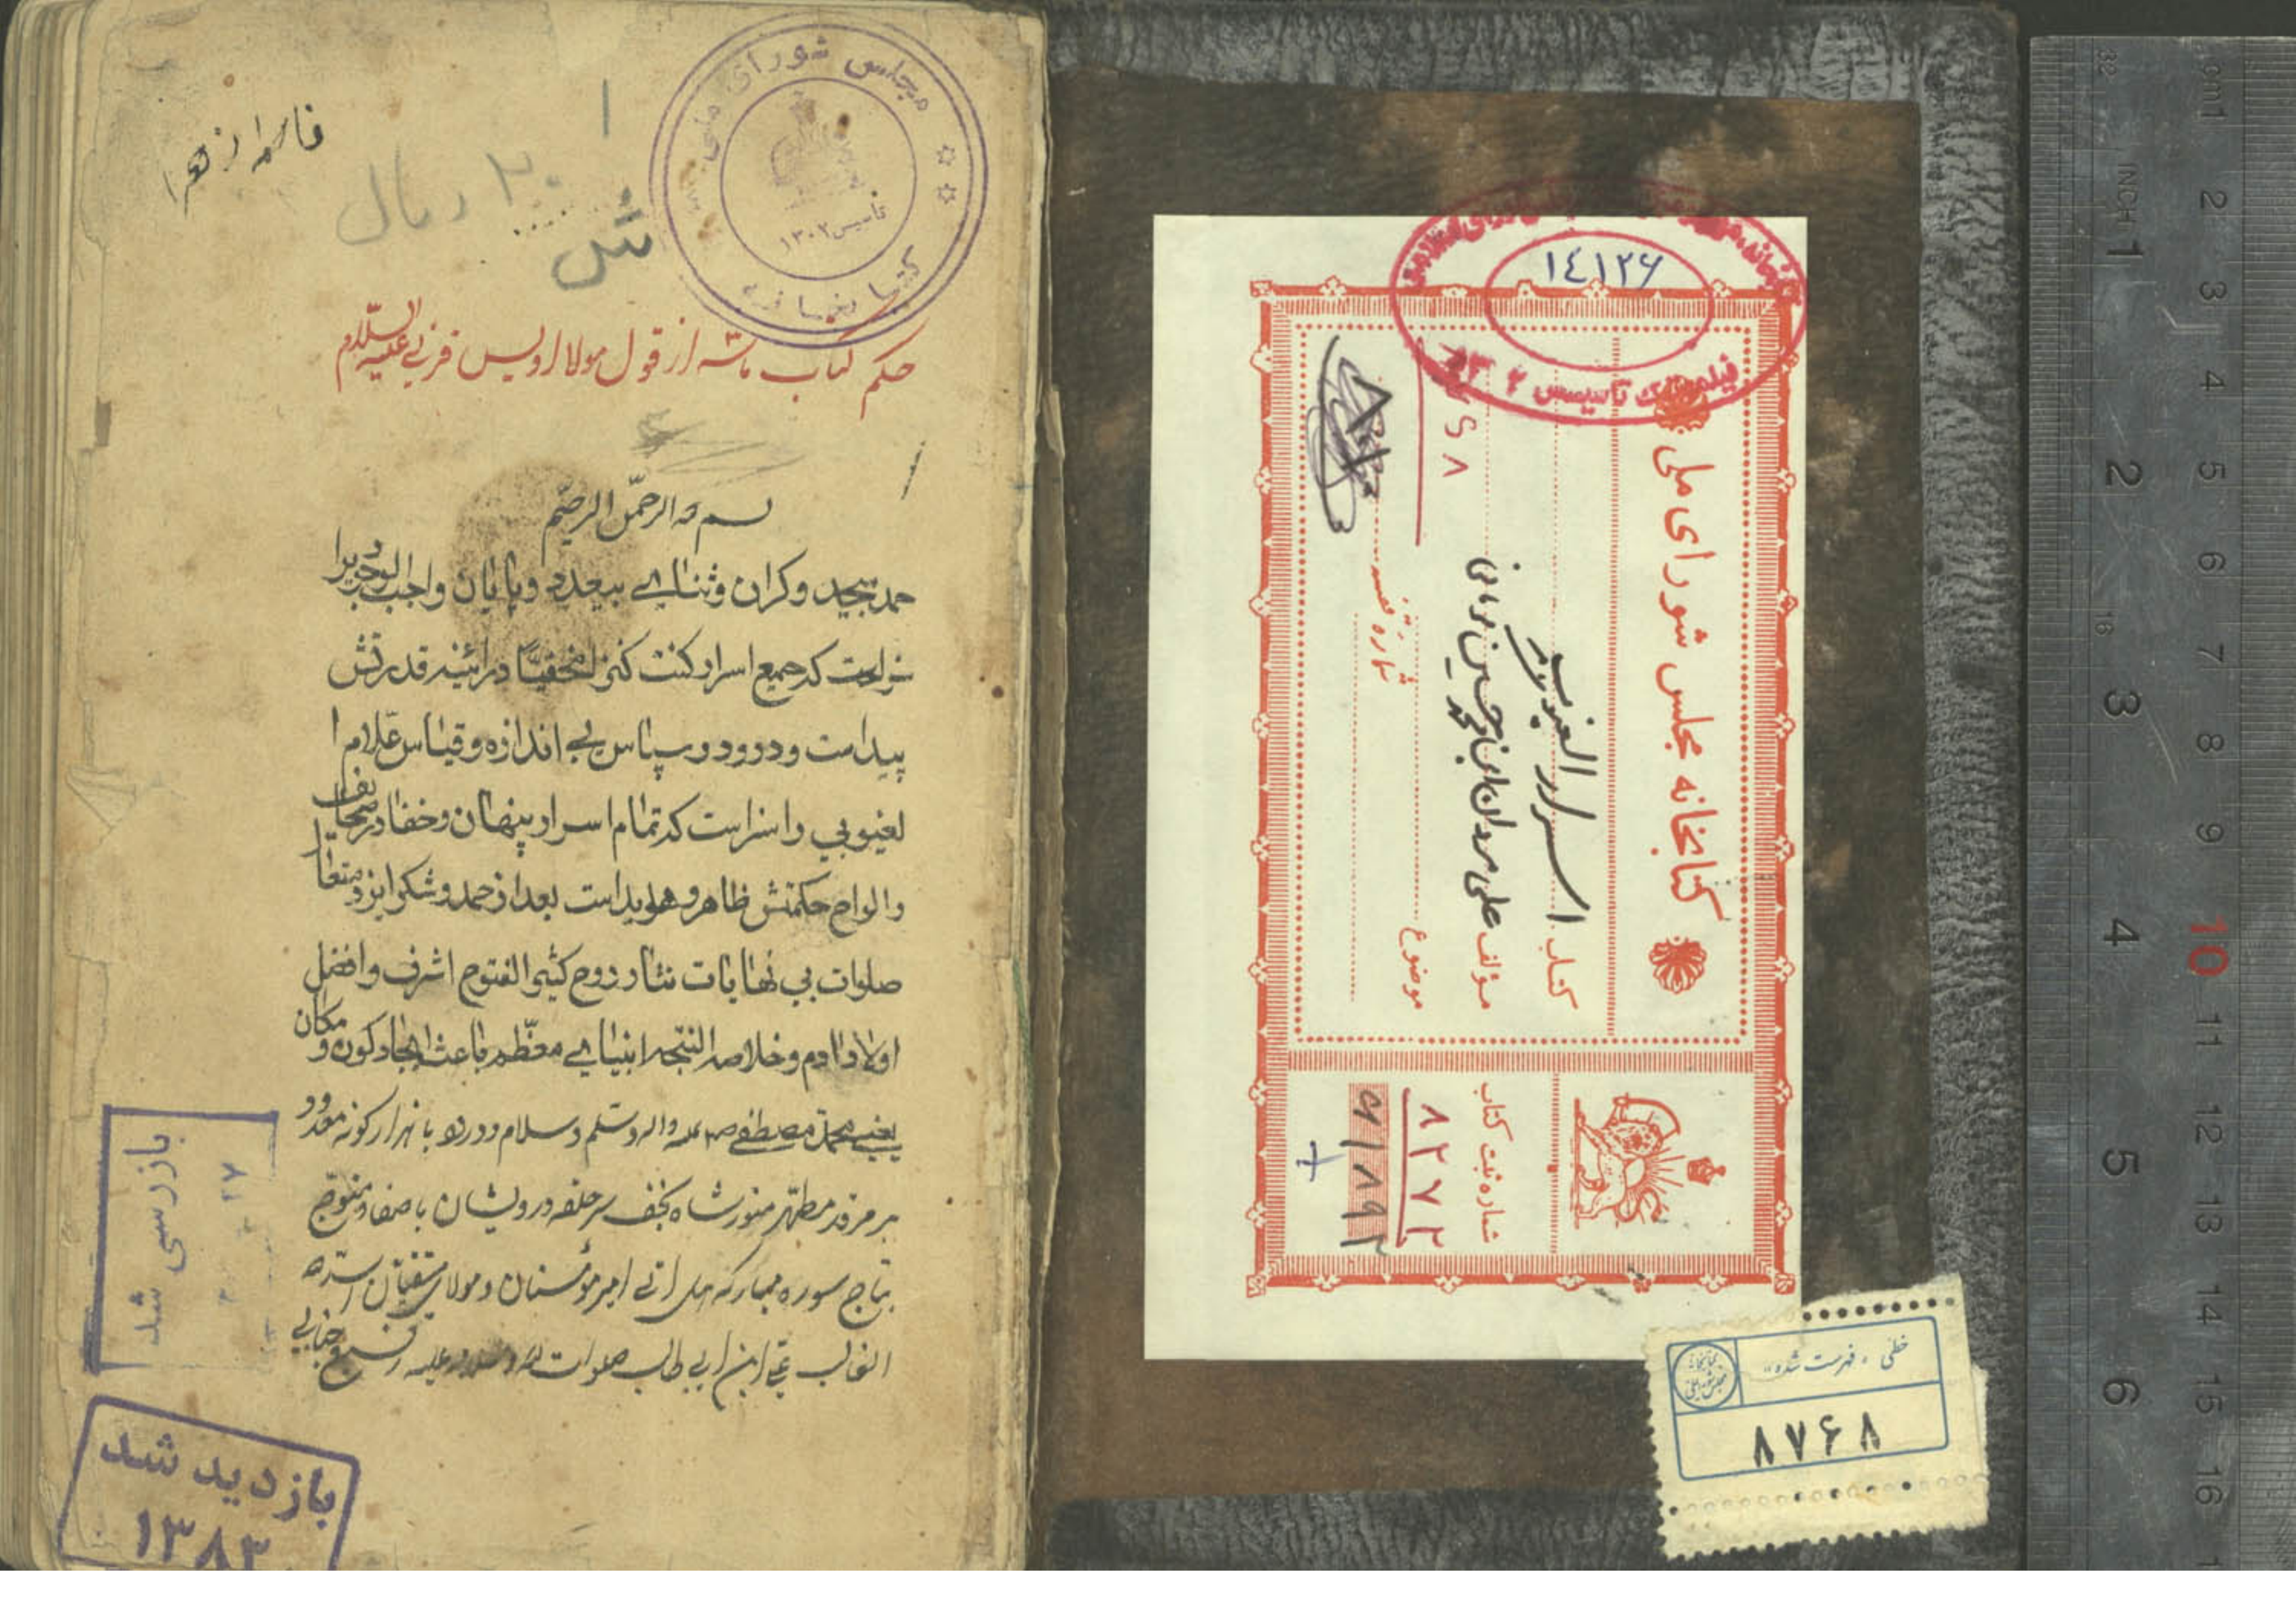 فاطمه زهرا
۲۰ ریال
ش
مجلس شورای ملی
تأسیس ۱۳۰۲
کتابخانه
حکم کتاب از قول مولا اویس قرنی علیه السلام
بسم الله الرحمن الرحیم
حمد بیحد وکران وثنای بیعد وپایان واجب الوجودیرا
سزاست که جمیع اسرار کنت کنزا مخفیا در ائینه قدرتش
پیداست و درود و سپاس بی اندازه وقیاس علام ا
لغیوبی را سزاست که تمام اسرار پنهان وخفا در صحایف
والواح حکمتش ظاهر و هویداست بعد از حمد وشکر ایزد متعال
صلوات بی نهایات نثار روح کثیر الفتوح اشرف وافضل
اولاد ادم وخلاصه النتیجه انبیای معظم باعث ایجاد کون و مکان
یعنی محمد مصطفی صلی الله علیه واله وسلم وسلام ودرود با هزار گونه
بر مرقد مطهر منور شاه نجف سر حلقه درویشان با صفا و متوج
بتاج سوره مبارکه هل اتی امیر مؤمنان و مولای متقیان اسد الله
الغالب علی ابن ابی طالب صلوات الله وسلامه علیه
بازرسی شد
۲۷
بازدید شد
۱۳۸۳
۱۴۱۲۶
تأسیس
کتابخانه مجلس شورای ملی
کتاب اسرار الغیوب
مؤلف علی مردان ابن محمد حسین
موضوع
شماره قفسه
شماره ثبت کتاب
۸۲۷۲
خطی «فهرست شده»
۸۷۶۸
cm 1 2 3 4 5 6 7 8 9 10 11 12 13 14 15 16
INCH 1 2 3 4 5 6
32
16